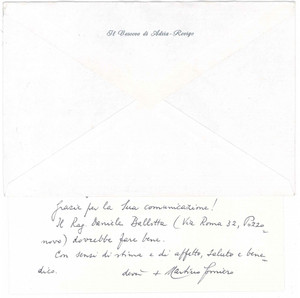 Il Vescovo di Adria-Rovigo
Grazie per la Sua comunicazione!
Il Rag. Daniele Ballotta (Via Roma 32, Pozzo
novo) dovrebbe fare bene.
Con sensi di stima e di affetto, saluto e bene
dico.
dev.mo + Martino Gomiero